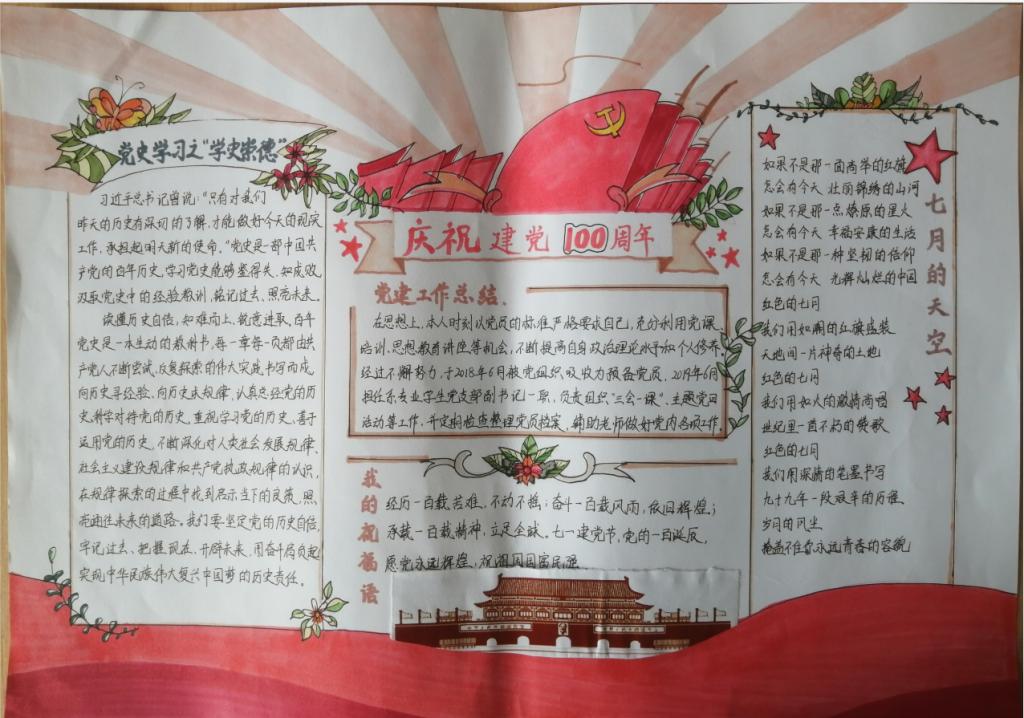 党史学习之“学史崇德”
习近平总书记曾说:“只有对我们
昨天的历史有深切的了解,才能做好今天的现实
工作,承担起明天新的使命。”党史是一部中国共
产党的百年历史,学习党史能够鉴得失、知成败,
汲取党史中的经验教训,铭记过去、照亮未来。
读懂历史自信,知难而上、锐意进取。百年
党史是一本生动的教科书,每一章每一页都由共
产党人不断尝试、反复探索的伟大实践书写而成。
向历史寻经验、向历史求规律,认真总结党的历
史,科学对待党的历史,重视学习党的历史,善于
运用党的历史,不断深化对人类社会发展规律、
社会主义建设规律和共产党执政规律的认识,
在规律探索的过程中找到启示当下的良策,照
亮通往未来的道路。我们要坚定党的历史自信,
牢记过去、把握现在、开辟未来,用奋斗肩负起
实现中华民族伟大复兴中国梦的历史责任。
庆祝建党100周年
党建工作总结、
在思想上,本人时刻以党员的标准严格要求自己,充分利用党课
培训、思想教育讲座等机会,不断提高自身政治理论水平和个人修养。
经过不懈努力,于2018年6月被党组织吸收为预备党员,2019年6月
担任系专业学生党支部副书记一职,负责组织“三会一课”、主题党日
活动等工作,并定期检查整理党员档案,辅助老师做好党内各项工作。
我的祝福语
经历一百载苦难,不动不摇;奋斗一百载风雨,依旧辉煌;
承载一百载精神,立足全球。七一建党节,党的一百诞辰,
愿党永远辉煌,祝祖国国富民强
七月的天空
如果不是那一面高举的红旗
怎会有今天 壮丽锦绣的山河
如果不是那一点燎原的星火
怎会有今天 幸福安康的生活
如果不是那一种坚韧的信仰
怎会有今天 光辉灿烂的中国
红色的七月
我们用如潮的红旗盛装
天地间一片神奇的土地
红色的七月
我们用如火的激情高唱
世纪里一首不朽的赞歌
红色的七月
我们用深情的笔墨书写
九十九年一段艰辛的历程
岁月的风尘
掩盖不住你永远青春的容貌